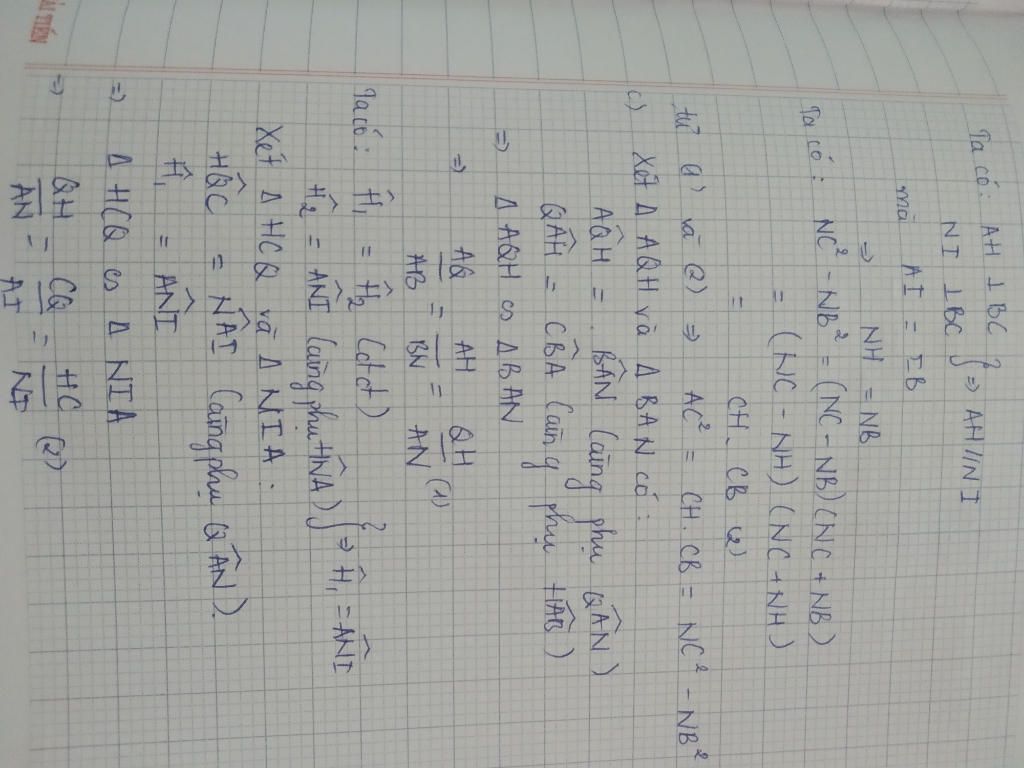 ẢI TIẾN
Ta có: AH ⊥ BC } ⇒ AH // NI
NI ⊥ BC
mà AI = IB
⇒ NH = NB
Ta có: NC² - NB² = (NC - NB)(NC + NB)
= (NC - NH)(NC + NH)
= CH. CB (2)
từ (1) và (2) ⇒ AC² = CH. CB = NC² - NB²
c) Xét Δ AQH và Δ BAN có:
AQ̂H = BÂN (cùng phụ QÂN)
QÂH = CB̂A (cùng phụ HÂB)
⇒ Δ AQH ∽ Δ BAN
⇒ AQ/AB = AH/BN = QH/AN (1)
Ta có: Ĥ₁ = Ĥ₂ (đđ) } ⇒ Ĥ₁ = AN̂I
Ĥ₂ = AN̂I (cùng phụ HN̂A)
Xét Δ HCQ và Δ NIA:
HQ̂C = NÂI (cùng phụ QÂN).
Ĥ₁ = AN̂I
⇒ Δ HCQ ∽ Δ NIA
⇒ QH/AN = CQ/AI = HC/NI (2)